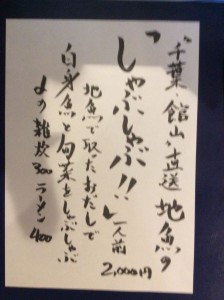 "千葉・館山"直送 地魚の
しゃぶしゃぶ!!
一人前
2,000円
地魚で取ったおだしで
白身魚と旬菜をしゃぶしゃぶ
〆の雑炊300 ラーメン400